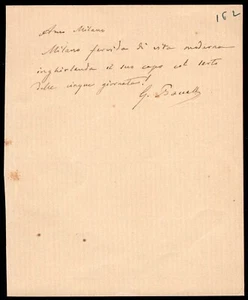 162
Milano
Milano fervida di vita moderna
inghirlanda il suo capo col serto
delle cinque giornate!
G.